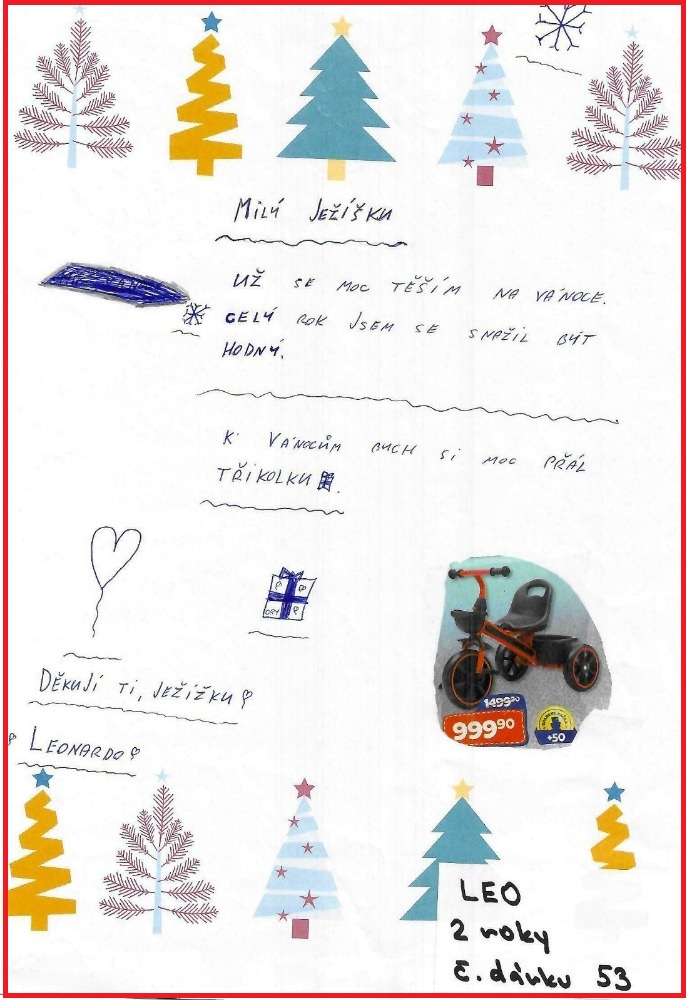 MILÝ JEŽÍŠKU
UŽ SE MOC TĚŠÍM NA VÁNOCE.
CELÝ ROK JSEM SE SNAŽIL BÝT
HODNÝ.
K VÁNOCŮM BYCH SI MOC PŘÁL
TŘÍKOLKU.
DĚKUJI TI, JEŽÍŽKU
LEONARDO
1499⁹⁰
999⁹⁰
+50
LEO
2 roky
č. dárku 53